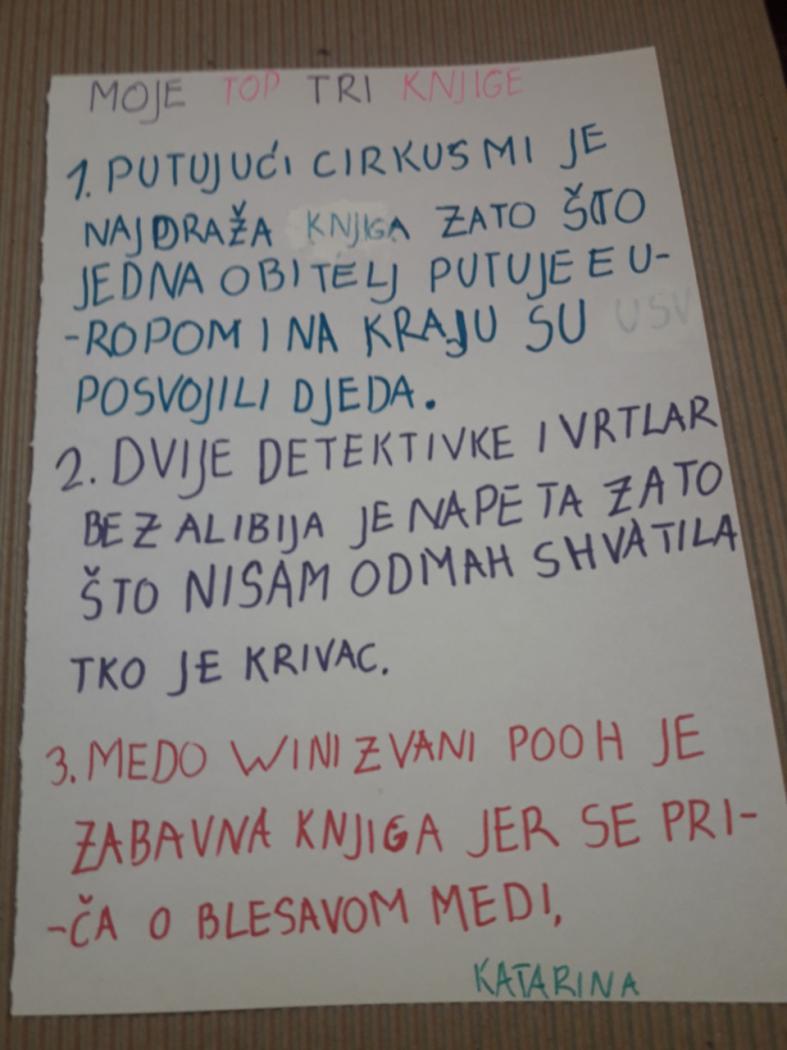 MOJE TOP TRI KNJIGE
1. PUTUJUĆI CIRKUS MI JE
NAJDRAŽA KNJIGA ZATO ŠTO
JEDNA OBITELJ PUTUJE EU-
-ROPOM I NA KRAJU SU
POSVOJILI DJEDA.
2. DVIJE DETEKTIVKE I VRTLAR
BEZ ALIBIJA JE NAPETA ZATO
ŠTO NISAM ODMAH SHVATILA
TKO JE KRIVAC.
3. MEDO WINI ZVANI POOH JE
ZABAVNA KNJIGA JER SE PRI-
-ČA O BLESAVOM MEDI.
KATARINA